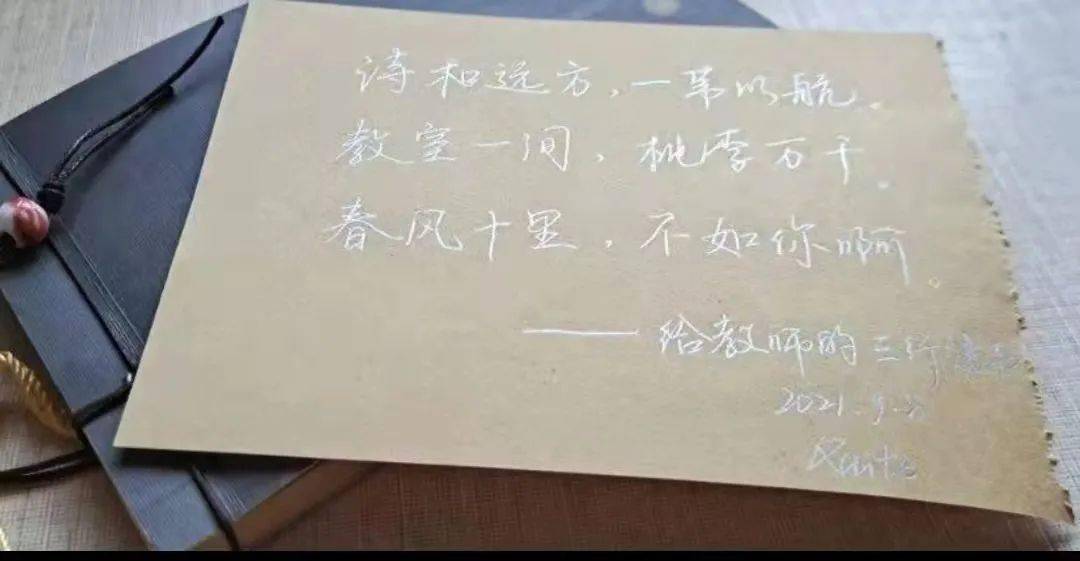 诗和远方，一苇以航。
教室一间，桃李万千。
春风十里，不如你啊。
——给教师的三行
2021.9.